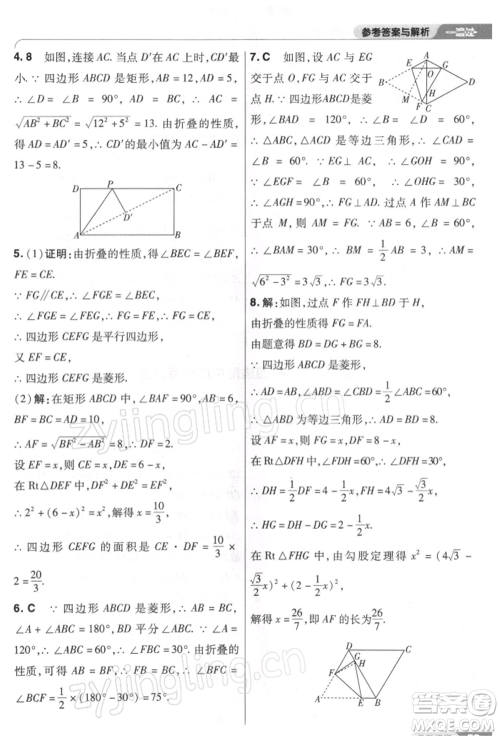 参考答案与解析
4. 8 如图,连接 AC. 当点 D′在 AC 上时,CD′最
小. ∵ 四边形 ABCD 是矩形,
∴ ∠D = ∠B = 90°. ∴ AC =
√(AB² + BC²) = √(12² + 5²) = 13. 由折叠的性质,
得 AD = AD′ = 5,∴ CD′的最小值为 AC - AD′ =
13 - 5 = 8.
D P C
D′
A B
5. (1)证明:由折叠的性质,得∠BEC = ∠BEF,
FE = CE.
∵ FG∥CE,∴ ∠FGE = ∠BEC.
∴ ∠FGE = ∠BEF. ∴ FG = FE. ∴ FG = CE.
∴ 四边形 CEFG 是平行四边形.
又 EF = CE,
∴ 四边形 CEFG 是菱形.
(2)解:在矩形 ABCD 中,∠BAF = 90°,AB = 6,
BF = BC = AD = 10,
∴ AF = √(BF² - AB²) = 8,∴ DF = 2.
设 EF = x,则 CE = x,DE = 6 - x.
在 Rt△DEF 中,DF² + DE² = EF²,
∴ 2² + (6 - x)² = x². 解得 x = 10/3.
∴ 四边形 CEFG 的面积是 CE · DF = 10/3 ×
2 = 20/3.
6. C ∵ 四边形 ABCD 是菱形,∴ AB = BC,
∠A + ∠ABC = 180°,BD 平分∠ABC. ∵ ∠A =
120°,∴ ∠ABC = 60°,∴ ∠FBC = 30°. 由折叠的
性质,可得 AB = BF,∴ FB = BC. ∴ ∠BFC =
∠BCF = 1/2 × (180° - 30°) = 75°.
7. C 如图,设 AC 与 EG
∵ 四边形ABCD是菱形,
∠BAD = 120°,∴ ∠B = 60°,
∴ △ABC,△ADC 是等边三角形,∴ ∠BAC =
∠B = 60°. ∵ EG⊥AC,∴ ∠GOH = 90°.
∵ ∠EGF = ∠B = 60°,∴ ∠OHG = 30°,
∴ ∠AGH = 90°. 过点 A 作 AM⊥BC 于点 M,
∴ ∠BAM = 30°,∴ BM = 1/2 AB = 3,∴ AM =
√(6² - 3²) = 3√3,∴ FG = AM = 3√3.
8. 解:如图,过点 F 作 FH⊥BD 于 H,
由折叠的性质得 FG = FA,
由题意得 BD = DG + BG = 8,
∵ 四边形 ABCD 是菱形,
∴ AD = AB,∠ABD = ∠CBD = 1/2 ∠ABC = 60°,
∴ △ABD 为等边三角形,∴ AD = BD = 8.
设 AF = x,则 FG = x,DF = 8 - x.
在 Rt△DFH 中,∠FDH = 60°,∴ ∠DFH = 30°,
∴ DH = 1/2 DF = 4 - 1/2 x,∴ FH = 4√3 - √3/2 x.
在 Rt△FHG 中,由勾股定理得 x² = (4√3 -
√3/2 x)² + (
解得 x = 26/7,即 AF 的长为 26/7.
zyjingling.cn
zyjingling.cn